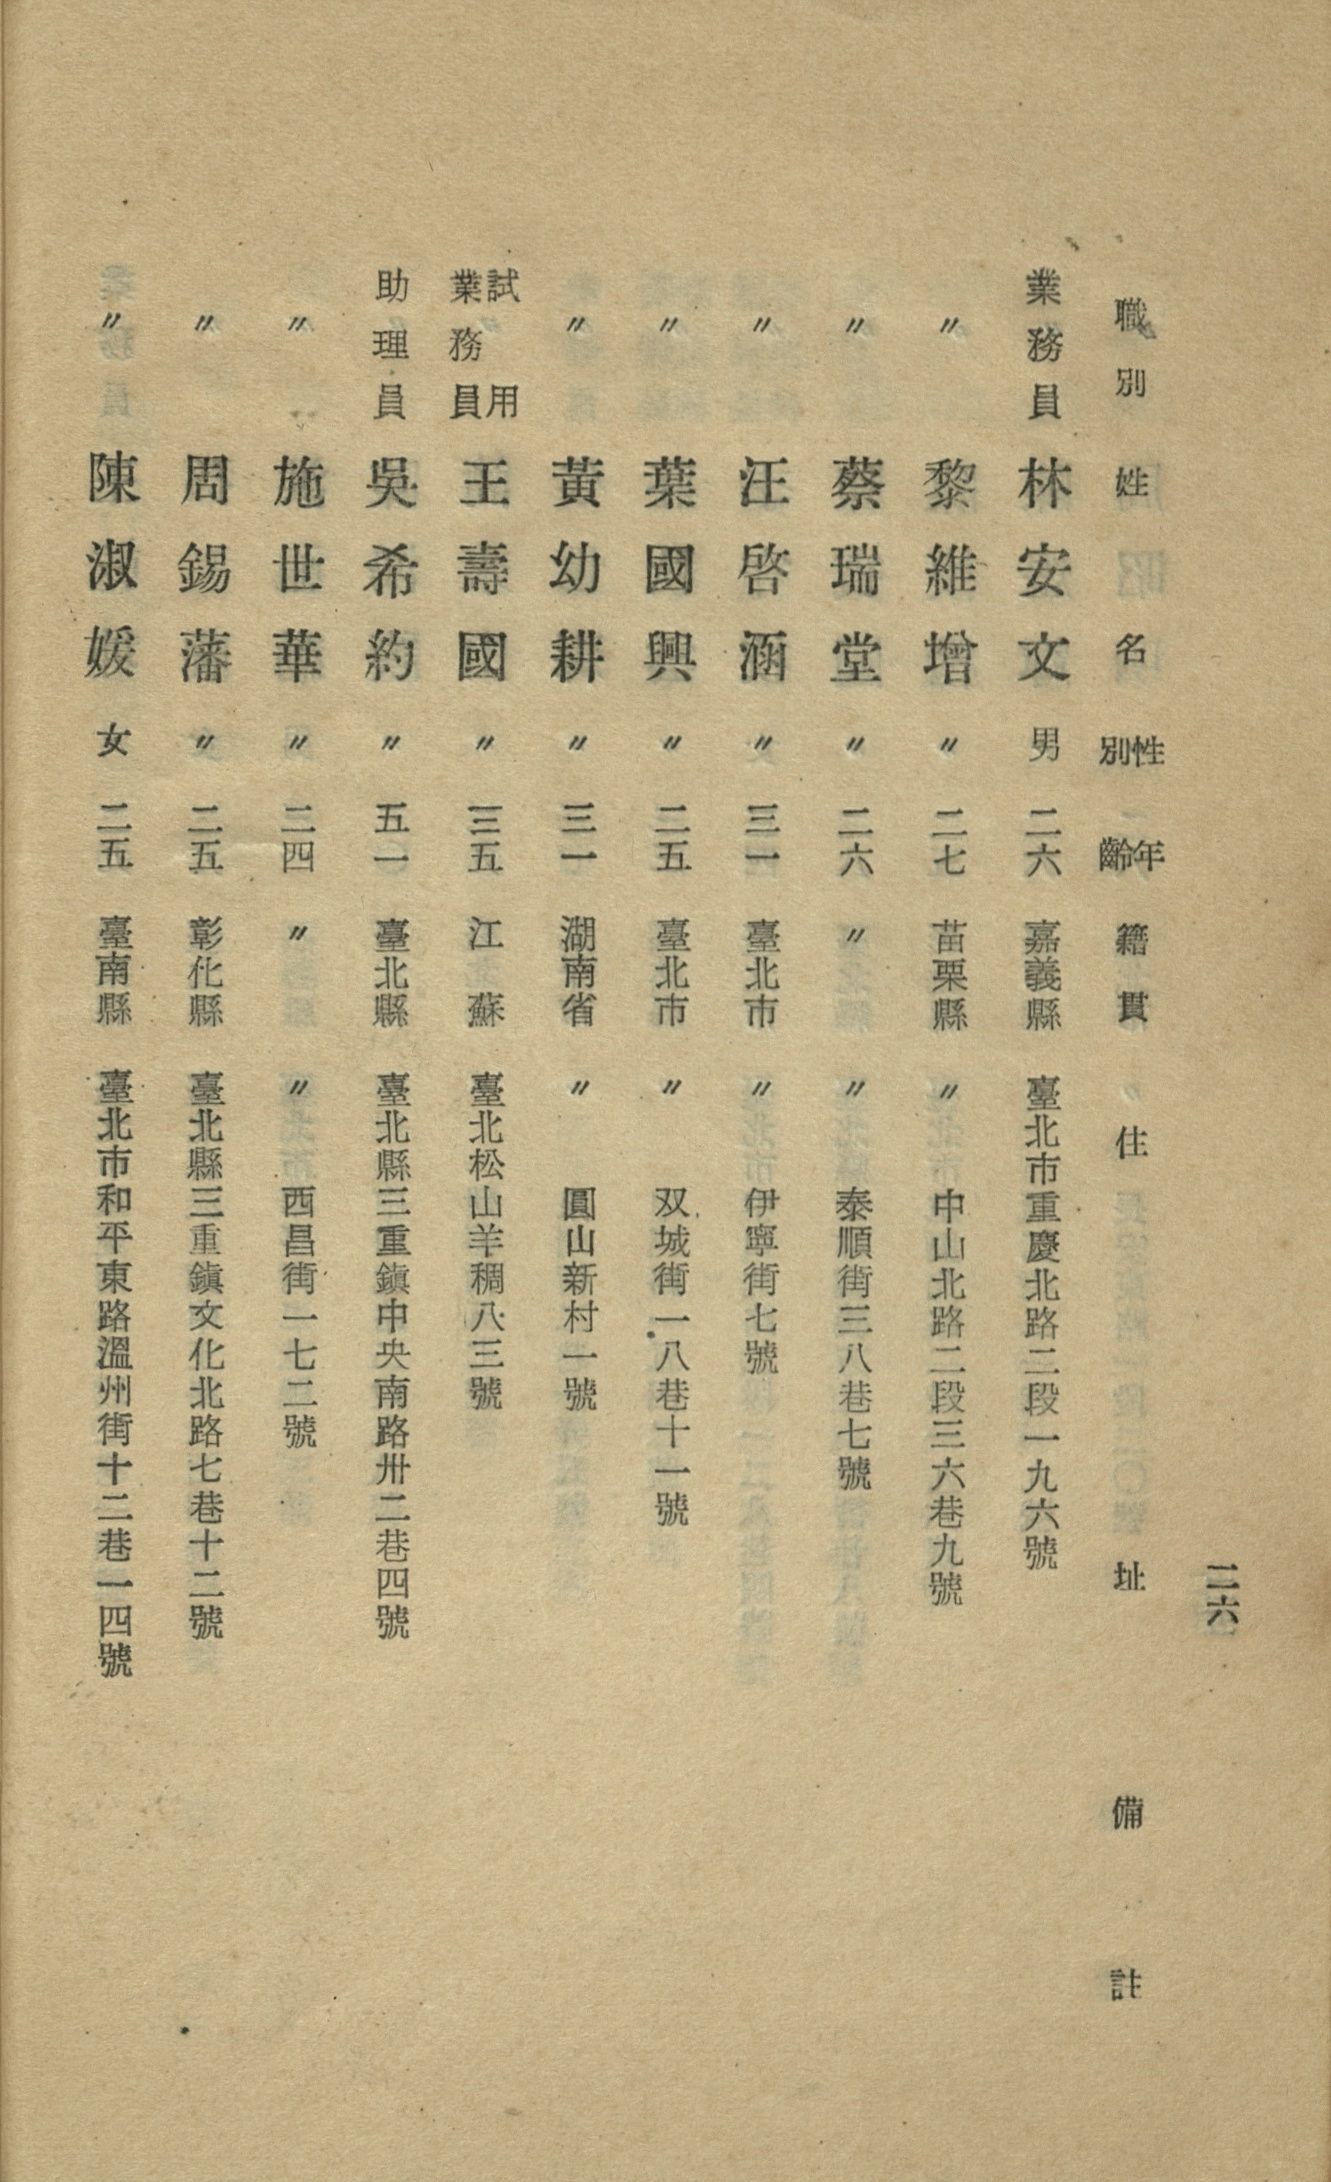 二六
職別 姓名 性別 年齡 籍貫 住址 備註
業務員 林安文 男 二六 嘉義縣 臺北市重慶北路二段一九六號
〃 黎維增 〃 二七 苗栗縣 〃 中山北路二段三六巷九號
〃 蔡瑞堂 〃 二六 〃 〃 泰順街三八巷七號
〃 汪啓涵 〃 三一 臺北市 〃 伊寧街七號
〃 葉國興 〃 二五 臺北市 〃 双城街一八巷十一號
〃 黃幼耕 〃 三一 湖南省 〃 圓山新村一號
試用業務員 王壽國 〃 三五 江蘇 臺北松山羊稠八三號
助理員 吳希約 〃 五一 臺北縣 臺北縣三重鎮中央南路卅二巷四號
〃 施世華 〃 二四 〃 〃 西昌街一七二號
〃 周錫藩 〃 二五 彰化縣 臺北縣三重鎮文化北路七巷十二號
〃 陳淑媛 女 二五 臺南縣 臺北市和平東路溫州街十二巷一四號